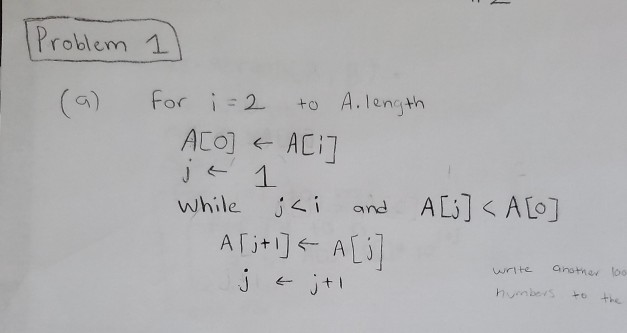 Problem 1
(a) For i = 2 to A.length
A[0] ← A[i]
j ← 1
While j < i and A[j] < A[0]
A[j+1] ← A[j]
j ← j+1
write another
numbers to the